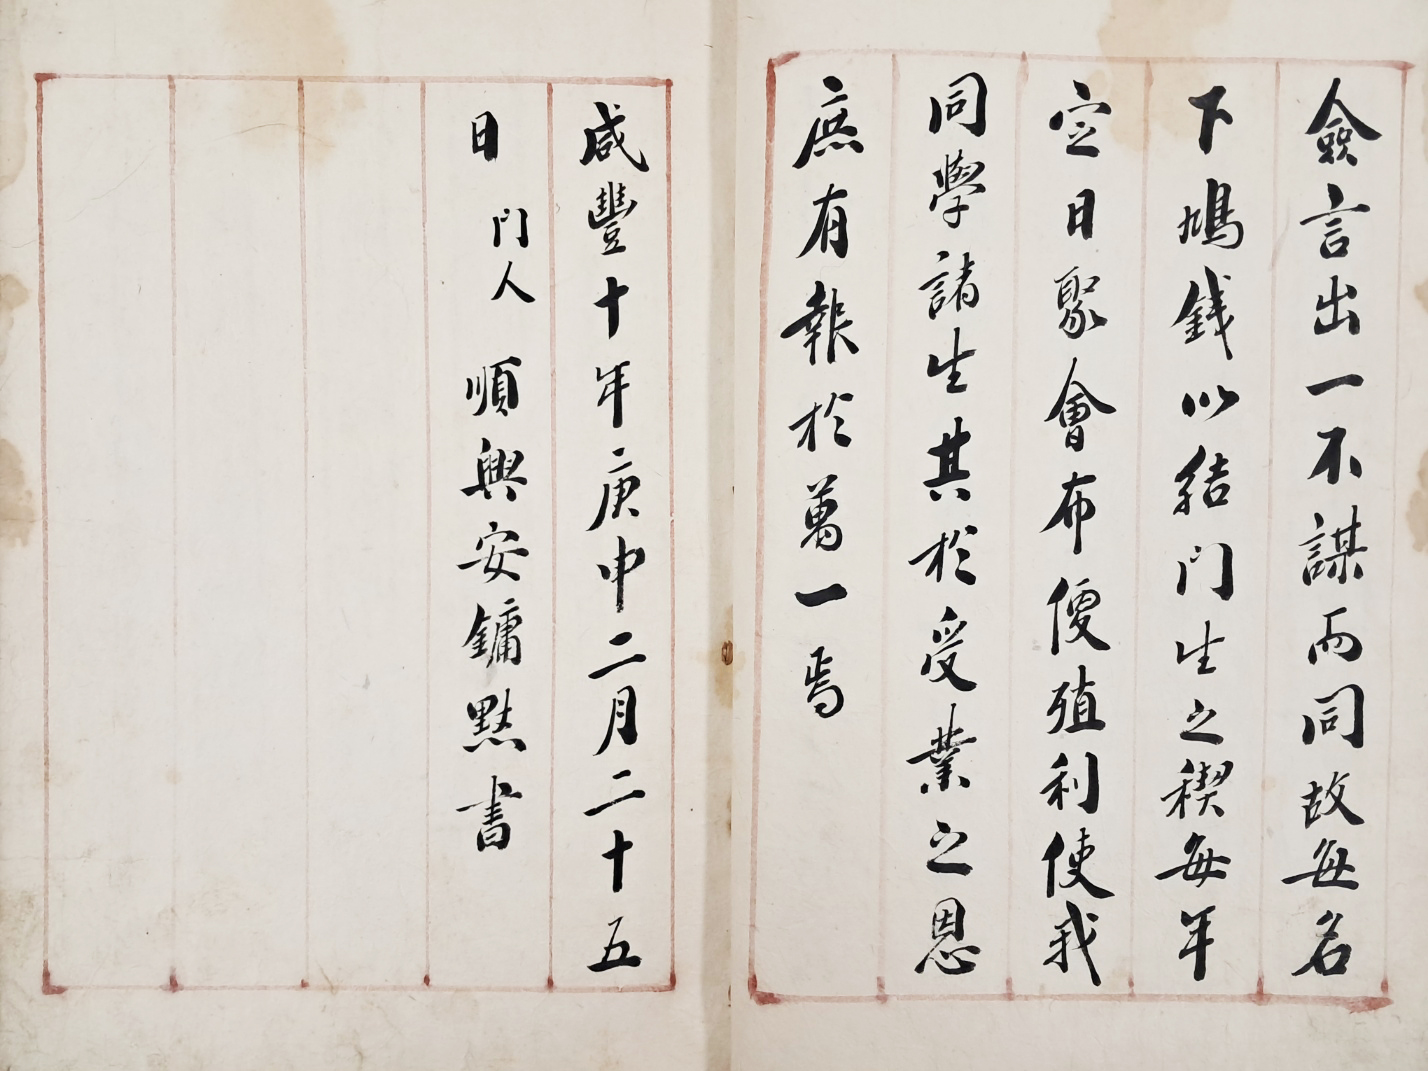 僉言出一不謀而同故每名
下鳩錢以結門生之稧每年
定日聚會布優殖利使我
同學諸生其於受業之恩
庶有報於萬一焉
咸豐十年庚申二月二十五
日 門人 順興安鏞黙書